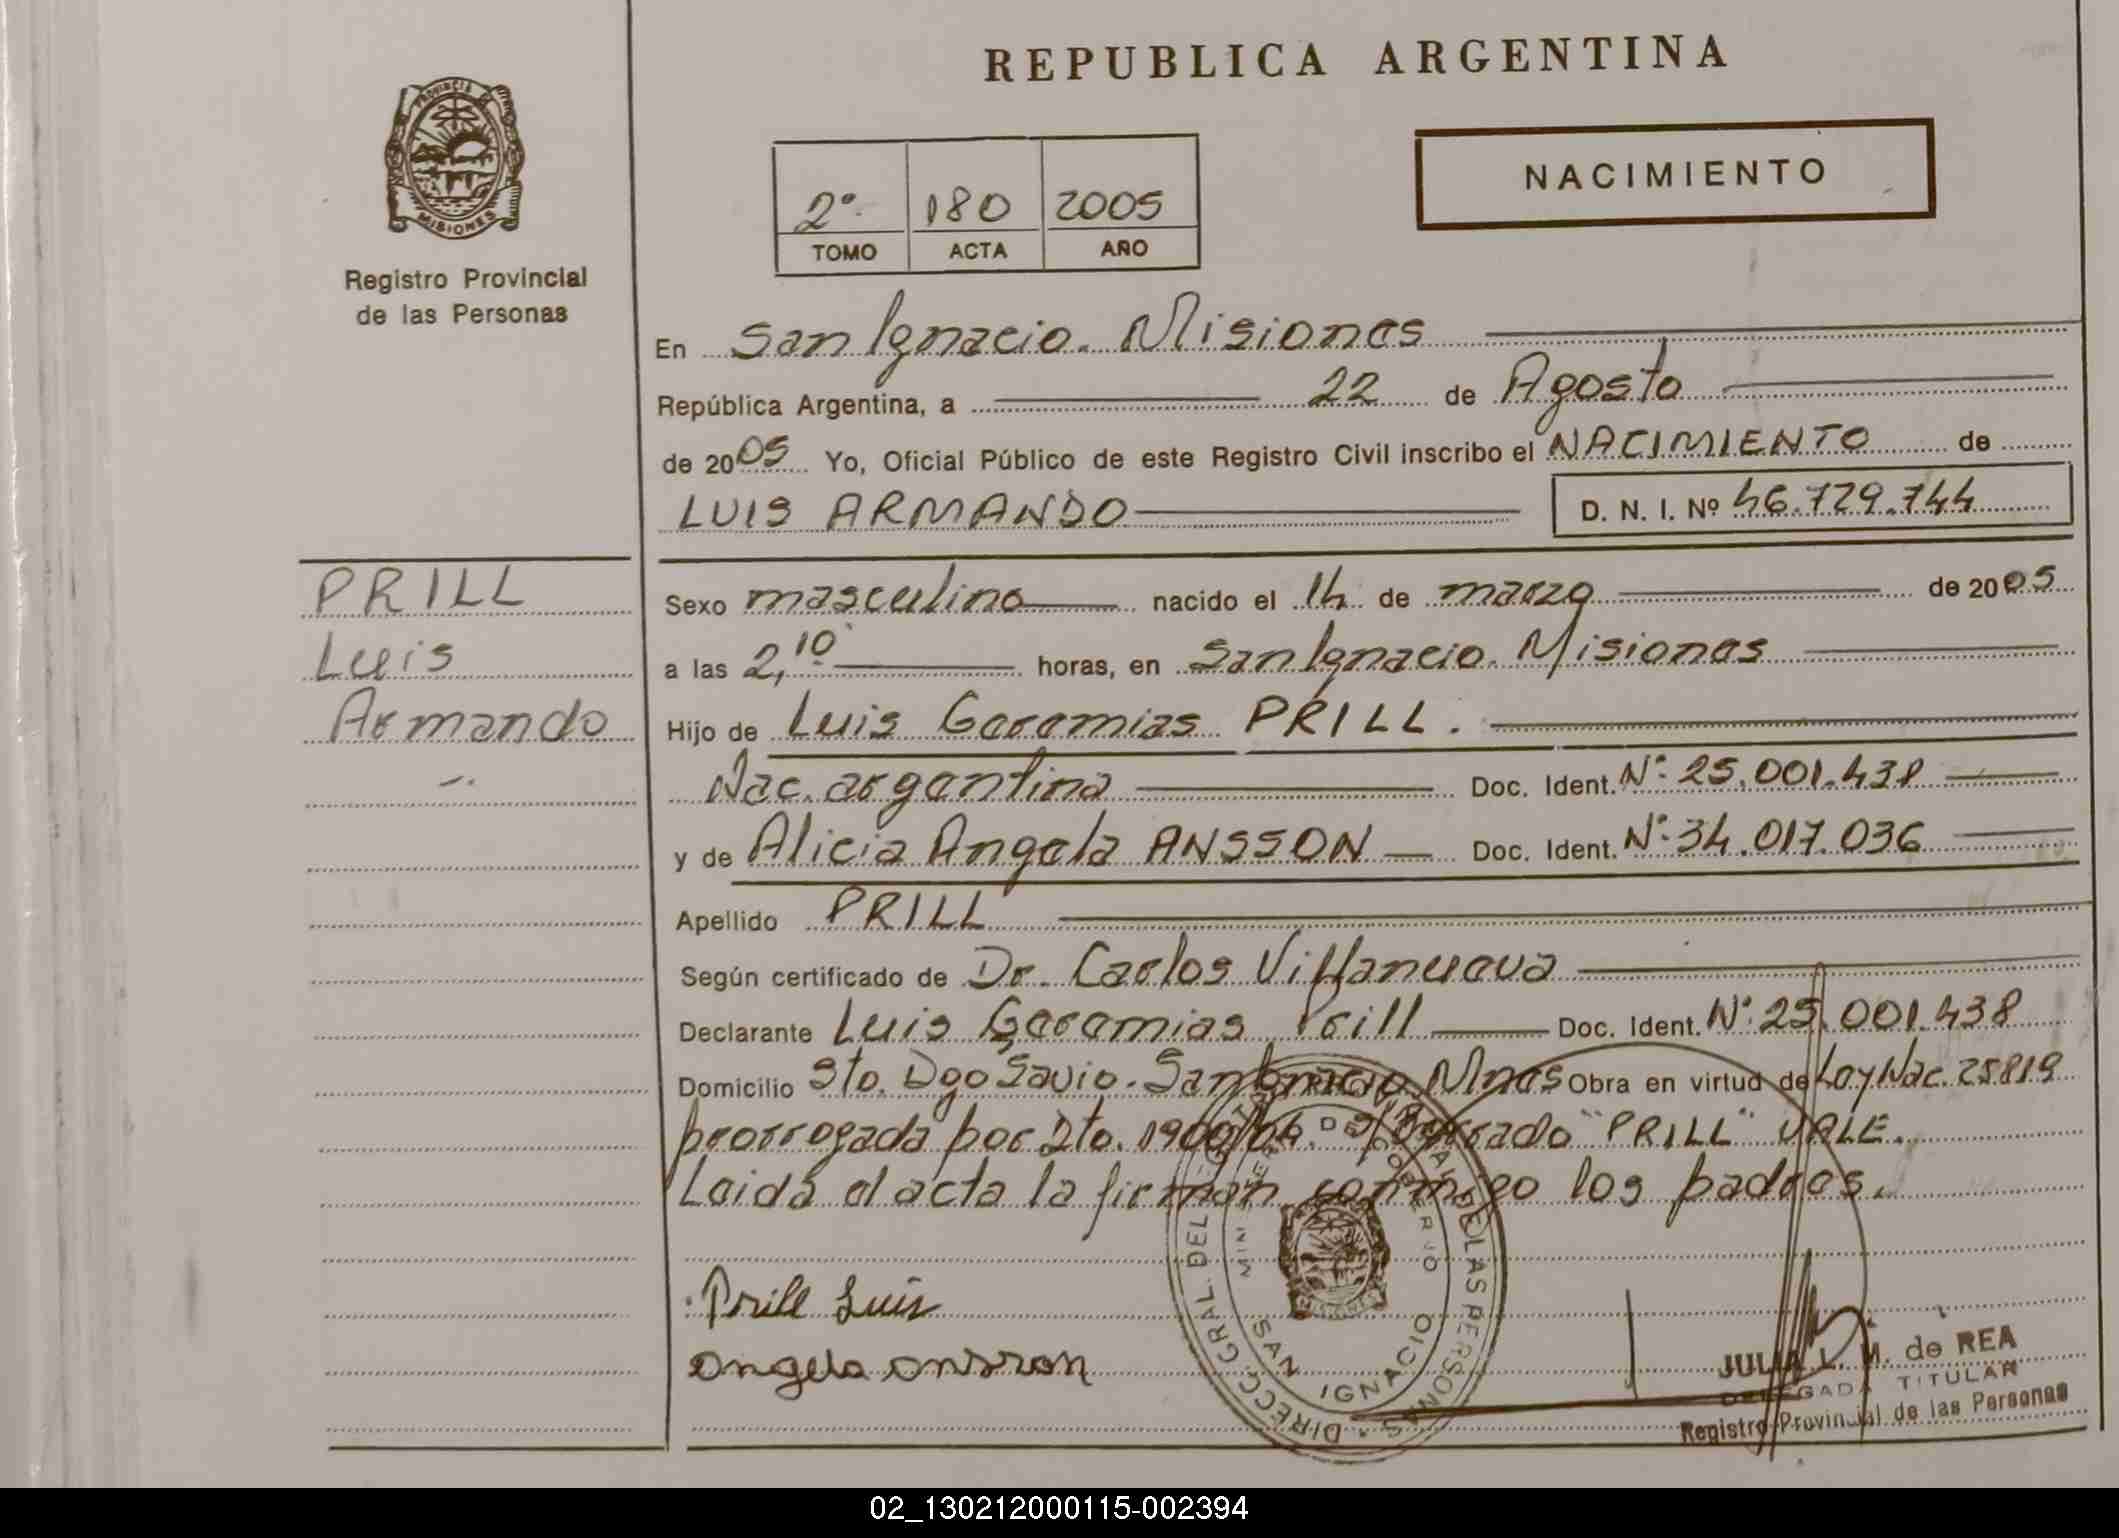 REPUBLICA ARGENTINA
NACIMIENTO
2º 180 2005
TOMO ACTA AÑO
PROVINCIA DE MISIONES
Registro Provincial
de las Personas
En San Ignacio. Misiones
República Argentina, a 22 de Agosto
de 2005 Yo, Oficial Público de este Registro Civil inscribo el NACIMIENTO de
LUIS ARMANDO D. N. I. Nº 46.729.744
PRILL
Luis
Armando
Sexo masculino nacido el 14 de marzo de 2005
a las 2,10 horas, en San Ignacio. Misiones
Hijo de Luis Geremias PRILL.
Nac. argentina Doc. Ident. Nº 25.001.438
y de Alicia Angela ANSSON Doc. Ident. Nº 34.017.036
Apellido PRILL
Según certificado de Dr. Carlos Villanueva
Declarante Luis Geremias Prill Doc. Ident. Nº 25.001.438
Domicilio Sto. Dgo Savio. San Ignacio. Mnes Obra en virtud de Ley Nac. 25819
prorrogada por Dto. "PRILL" VALE.
Leida el acta la firman conmigo los padres.
Prill Luis
Angela Ansson
DIRECC. GRAL. DEL REGISTRO PROVINCIAL DE LAS PERSONAS
MINISTERIO DE GOBIERNO
SAN IGNACIO
JULIA L. M. de REA
DELEGADA TITULAR
Registro Provincial de las Personas
02_130212000115-002394